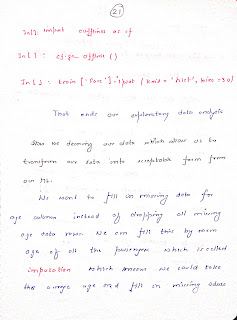 (21)
In[]: import cufflinks as cf
In[]: cf.go_offline()
In[]: train['Fare'].iplot(kind='hist', bins=30)
That ends our exploratory data analysis
Now we cleaning our data which allow us to
transform our data into acceptable form from
our ML.
We want to fill in missing data for
age column instead of dropping all missing
age data rows. We can fill this by mean
age of all the passengers which is called
imputation which means we could take
the average age and fill in missing values